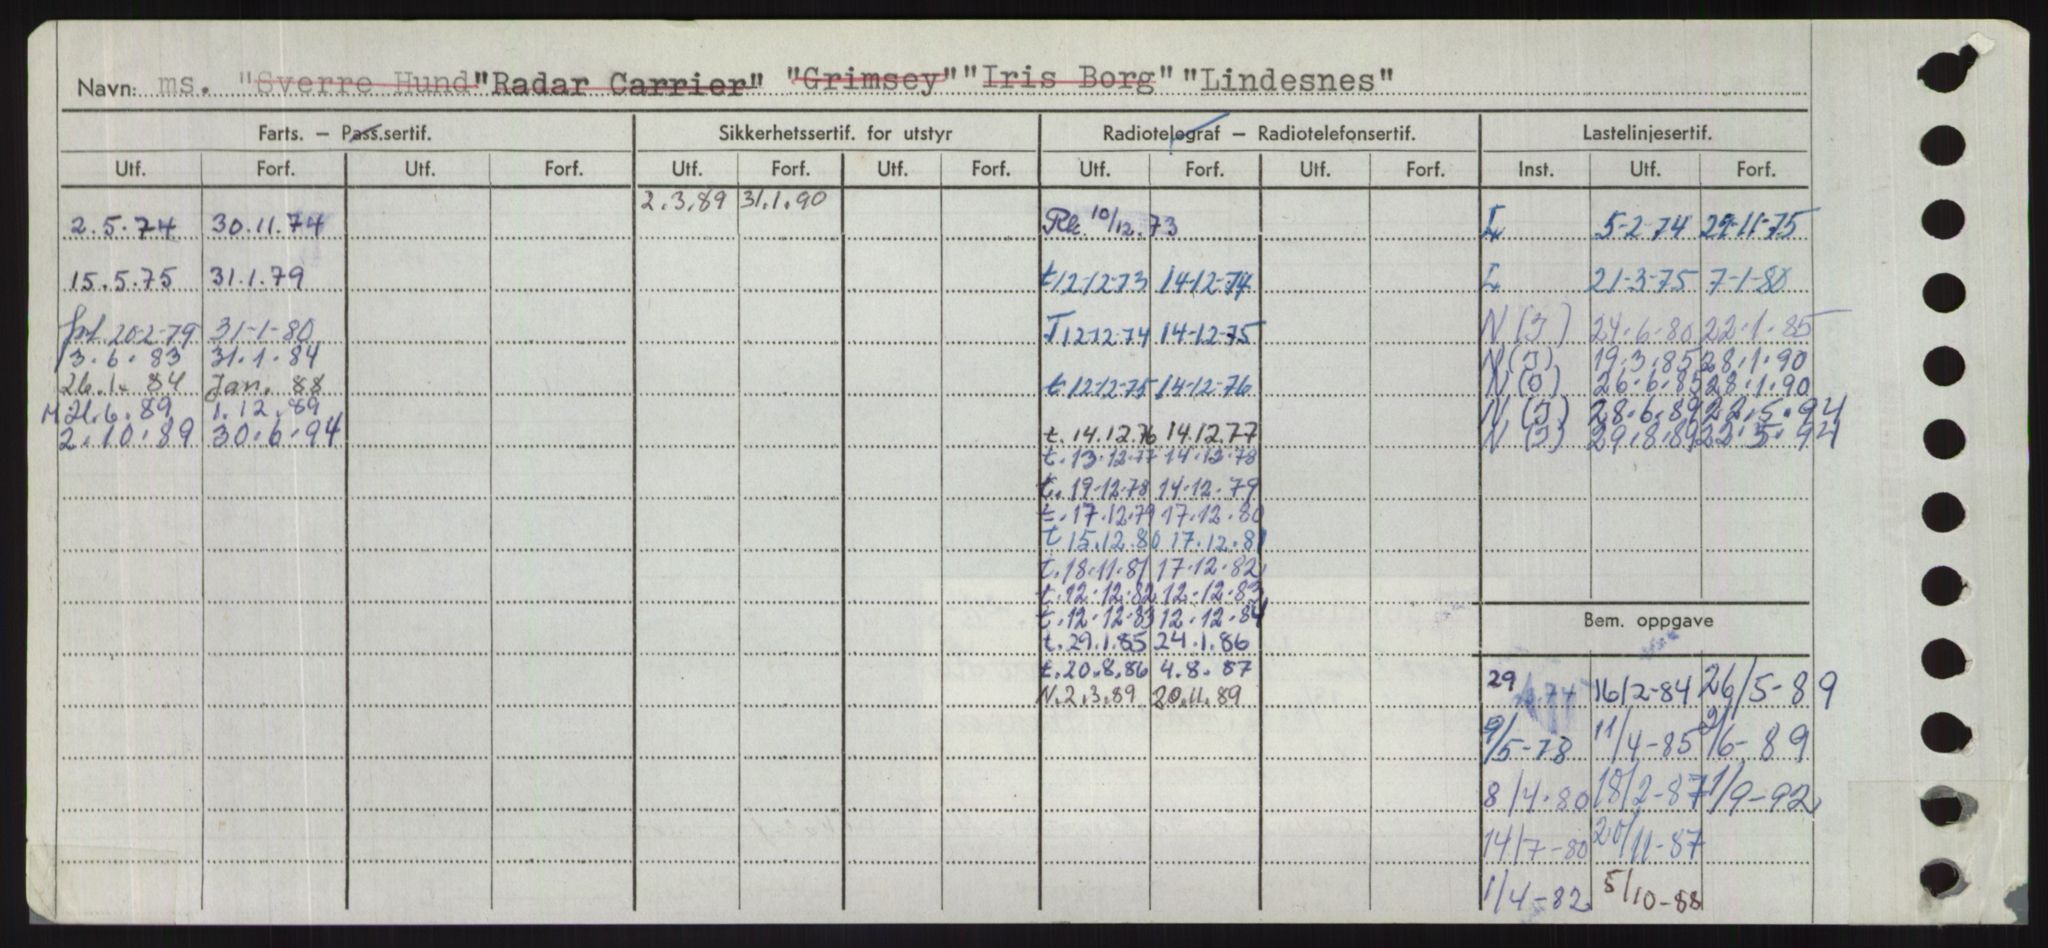 Navn: ms. "Sverre Hund" "Radar Carrier" "Grimsey" "Iris Borg" "Lindesnes"
Farts. – Pass.sertif. Sikkerhetssertif. for utstyr Radiotelegraf – Radiotelefonsertif. Lastelinjesertif.
Utf. Forf. Utf. Forf. Utf. Forf. Utf. Forf. Utf. Forf. Utf. Forf. Inst. Utf. Forf.
2.3.89 31.1.90
2.5.74 30.11.74 Rk. 10/12.73 I 5-2-74 29-11-75
15.5.75 31.1.79 t 12-12-73 14-12-74 I 21-3-75 7-1-80
forl. 20-2-79 31-1-80 T 12-12-74 14-12-75 N(I) 24.6.80 22.1.85
3.6.83 31.1.84 N(I) 19.3.85 28.1.90
26.1.84 Jan. 88 t. 12-12-75 14-12-76 N(O) 26.6.85 28.1.90
M 21.6.89 1.12.89 N(I) 28.6.89 22.5.94
2.10.89 30.6.94 t. 14.12.76 14.12.77 N(I) 29.8.89 22.5.94
t. 13.12.77 14.12.78
t. 19.12.78 14.12.79
t. 17.12.79 17.12.80
t 15.12.80 17.12.81
t. 18.11.81 17.12.82
t. 12.12.82 12.12.83
t. 12.12.83 12.12.84
Bem. oppgave
t. 29.1.85 24.1.86
t. 20.8.86 4.8.87
29 16/2-84 26/5-89
N. 2.3.89 20.11.89
9/5-78 11/4-85 9/6-89
8/4-80 18/2-87 1/9-92
14/7-80 20/11-87
1/4-82 5/10-88